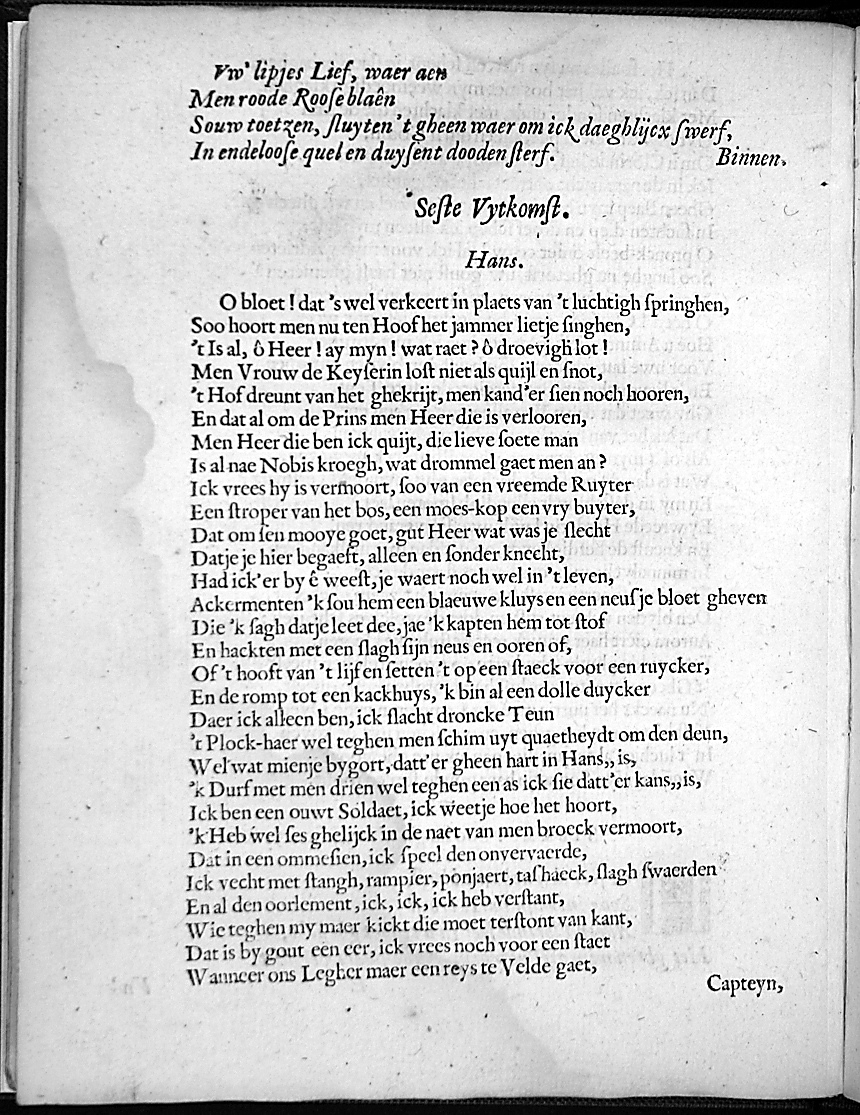 Vw' lipjes Lief, waer aen
Men roode Rooſeblaên
Souw toetzen, ſluyten 't gheen waer om ick daeghlijcx ſwerf,
In endelooſe quel en duyſent dooden ſterf. Binnen.
Seſte Vytkomſt.
Hans.
O bloet! dat 's wel verkeert in plaets van 't luchtigh ſpringhen,
Soo hoort men nu ten Hoof het jammer lietje ſinghen,
't Is al, ô Heer! ay myn! wat raet? ô droevigh lot!
Men Vrouw de Keyſerin loſt niet als quijl en ſnot,
't Hof dreunt van het ghekrijt, men kand'er ſien noch hooren,
En dat al om de Prins men Heer die is verlooren,
Men Heer die ben ick quijt, die lieve ſoete man
Is al nae Nobis kroegh, wat drommel gaet men an?
Ick vrees hy is vermoort, ſoo van een vreemde Ruyter
Een ſtroper van het bos, een moes-kop een vry buyter,
Dat om ſen mooye goet, gut Heer wat was je ſlecht
Datje je hier begaeft, alleen en ſonder knecht,
Had ick'er by ê weeſt, je waert noch wel in 't leven,
Ackermenten 'k ſou hem een blaeuwe kluys en een neuſje bloet gheven
Die 'k ſagh datje leet dee, jae 'k kapten hem tot ſtof
En hackten met een ſlagh ſijn neus en ooren of,
Of 't hooft van 't lijf en ſetten 't op een ſtaeck voor een ruycker,
En de romp tot een kackhuys, 'k bin al een dolle duycker
Daer ick alleen ben, ick ſlacht droncke Teun
't Plock-haer wel teghen men ſchim uyt quaetheydt om den deun,
Wel wat mienje bygort, datt'er gheen hart in Hans,, is,
'k Durf met men drien wel teghen een as ick ſie datt'er kans,, is,
Ick ben een ouwt Soldaet, ick weetje hoe het hoort,
'k Heb wel ſes ghelijck in de naet van men broeck vermoort,
Dat in een ommeſien, ick ſpeel den onvervaerde,
Ick vecht met ſtangh, rampier, ponjaert, taſhaeck, ſlagh ſwaerden
En al den oorlement, ick, ick, ick heb verſtant,
Wie teghen my maer kickt die moet terſtont van kant,
Dat is by gout een eer, ick vrees noch voor een ſtaet
Wanneer ons Legher maer een reys te Velde gaet,
Capteyn,